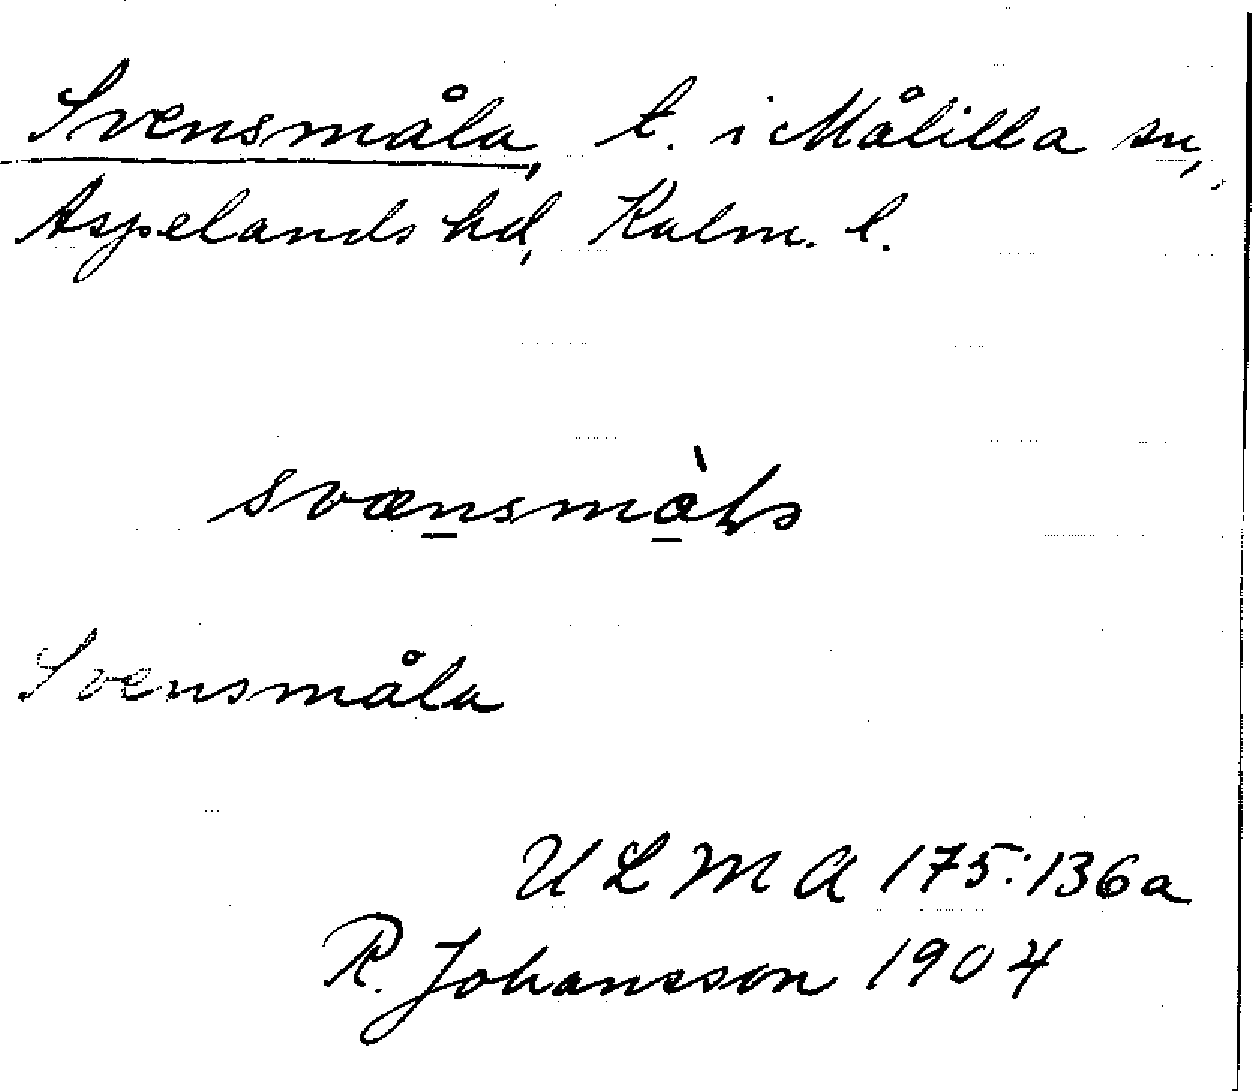 Svensmåla, t. i Målilla sn,
Aspelands hd, Kalm. l.
Svensmåla
ULMA 175:136a
R. Johansson 1904